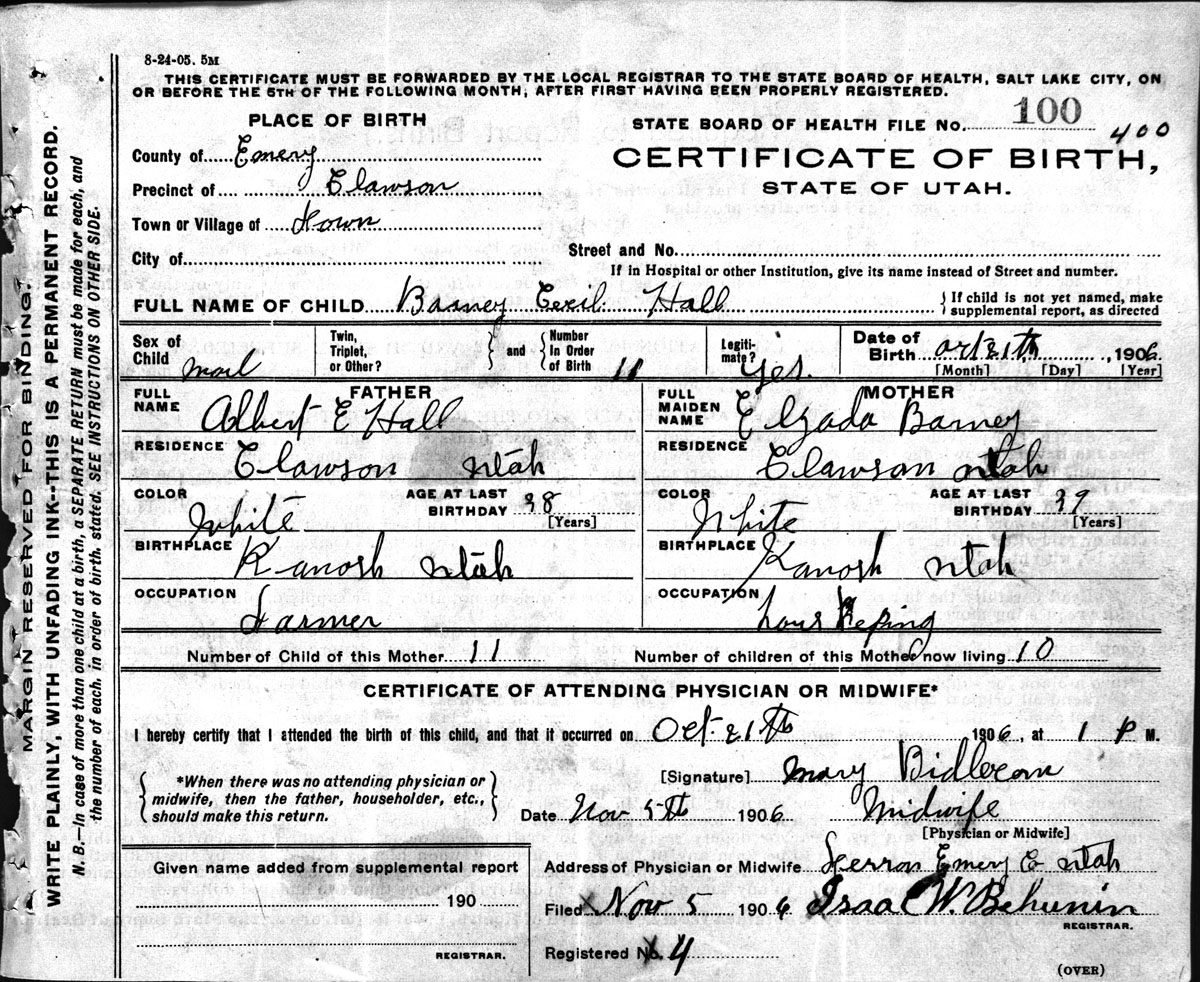 8-24-05. 5M
THIS CERTIFICATE MUST BE FORWARDED BY THE LOCAL REGISTRAR TO THE STATE BOARD OF HEALTH, SALT LAKE CITY, ON
OR BEFORE THE 5TH OF THE FOLLOWING MONTH, AFTER FIRST HAVING BEEN PROPERLY REGISTERED.
PLACE OF BIRTH
STATE BOARD OF HEALTH FILE No. 100 400
County of Emery
CERTIFICATE OF BIRTH,
Precinct of Clawson
STATE OF UTAH.
Town or Village of Town
City of
Street and No.
If in Hospital or other Institution, give its name instead of Street and number.
FULL NAME OF CHILD Barney Cecil Hall
If child is not yet named, make
supplemental report, as directed
Sex of
Child mail
Twin,
Triplet,
or Other?
and
Number
in Order
of Birth 11
Legiti-
mate? yes.
Date of
Birth oct 21th, 1906
[Month] [Day] [Year]
FATHER
FULL
NAME Albert E Hall
RESIDENCE
Clawson utah
COLOR White
AGE AT LAST
BIRTHDAY 38
[Years]
BIRTHPLACE Kanosh utah
OCCUPATION
Farmer
MOTHER
FULL
MAIDEN
NAME Elzada Barney
RESIDENCE
Clawson utah
COLOR White
AGE AT LAST
BIRTHDAY 39
[Years]
BIRTHPLACE Kanosh utah
OCCUPATION
hous keping
Number of Child of this Mother 11
Number of children of this Mother now living 10
CERTIFICATE OF ATTENDING PHYSICIAN OR MIDWIFE*
I hereby certify that I attended the birth of this child, and that it occurred on Oct 21th 1906, at 1 P M.
*When there was no attending physician or
midwife, then the father, householder, etc.,
should make this return.
[Signature] Mary Bidlecom
Date Nov 5th 1906 Midwife
[Physician or Midwife]
Given name added from supplemental report
190
REGISTRAR.
Address of Physician or Midwife Ferron Emery Co utah
Filed Nov 5 1906 Isaac W. Behunin
REGISTRAR.
Registered No. 4
(OVER)
MARGIN RESERVED FOR BINDING.
WRITE PLAINLY, WITH UNFADING INK--THIS IS A PERMANENT RECORD.
N. B.—In case of more than one child at a birth, a SEPARATE RETURN must be made for each, and
the number of each, in order of birth, stated. SEE INSTRUCTIONS ON OTHER SIDE.